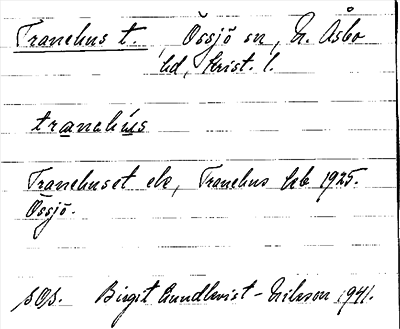 Tranehus t., Össjö sn, N. Åsbo
hd, Krist. l.
tranehús
Tranehuset ek, Tranehus hb 1925.
Össjö.
SOS. Birgit Lundkvist-Nilsson 1941.